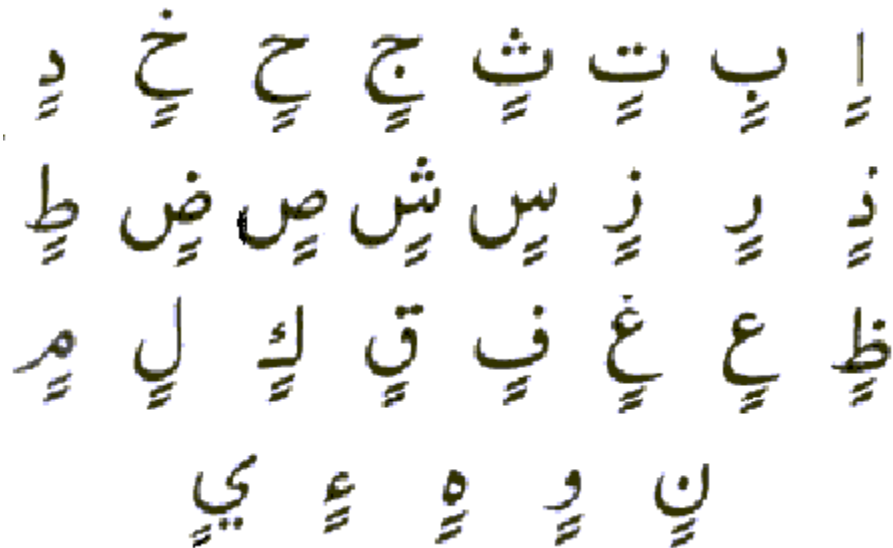 اٍ بٍ تٍ ثٍ جٍ حٍ خٍ دٍ
ذٍ رٍ زٍ سٍ شٍ صٍ ضٍ طٍ
ظٍ عٍ غٍ فٍ قٍ كٍ لٍ مٍ
نٍ وٍ هٍ ءٍ يٍ